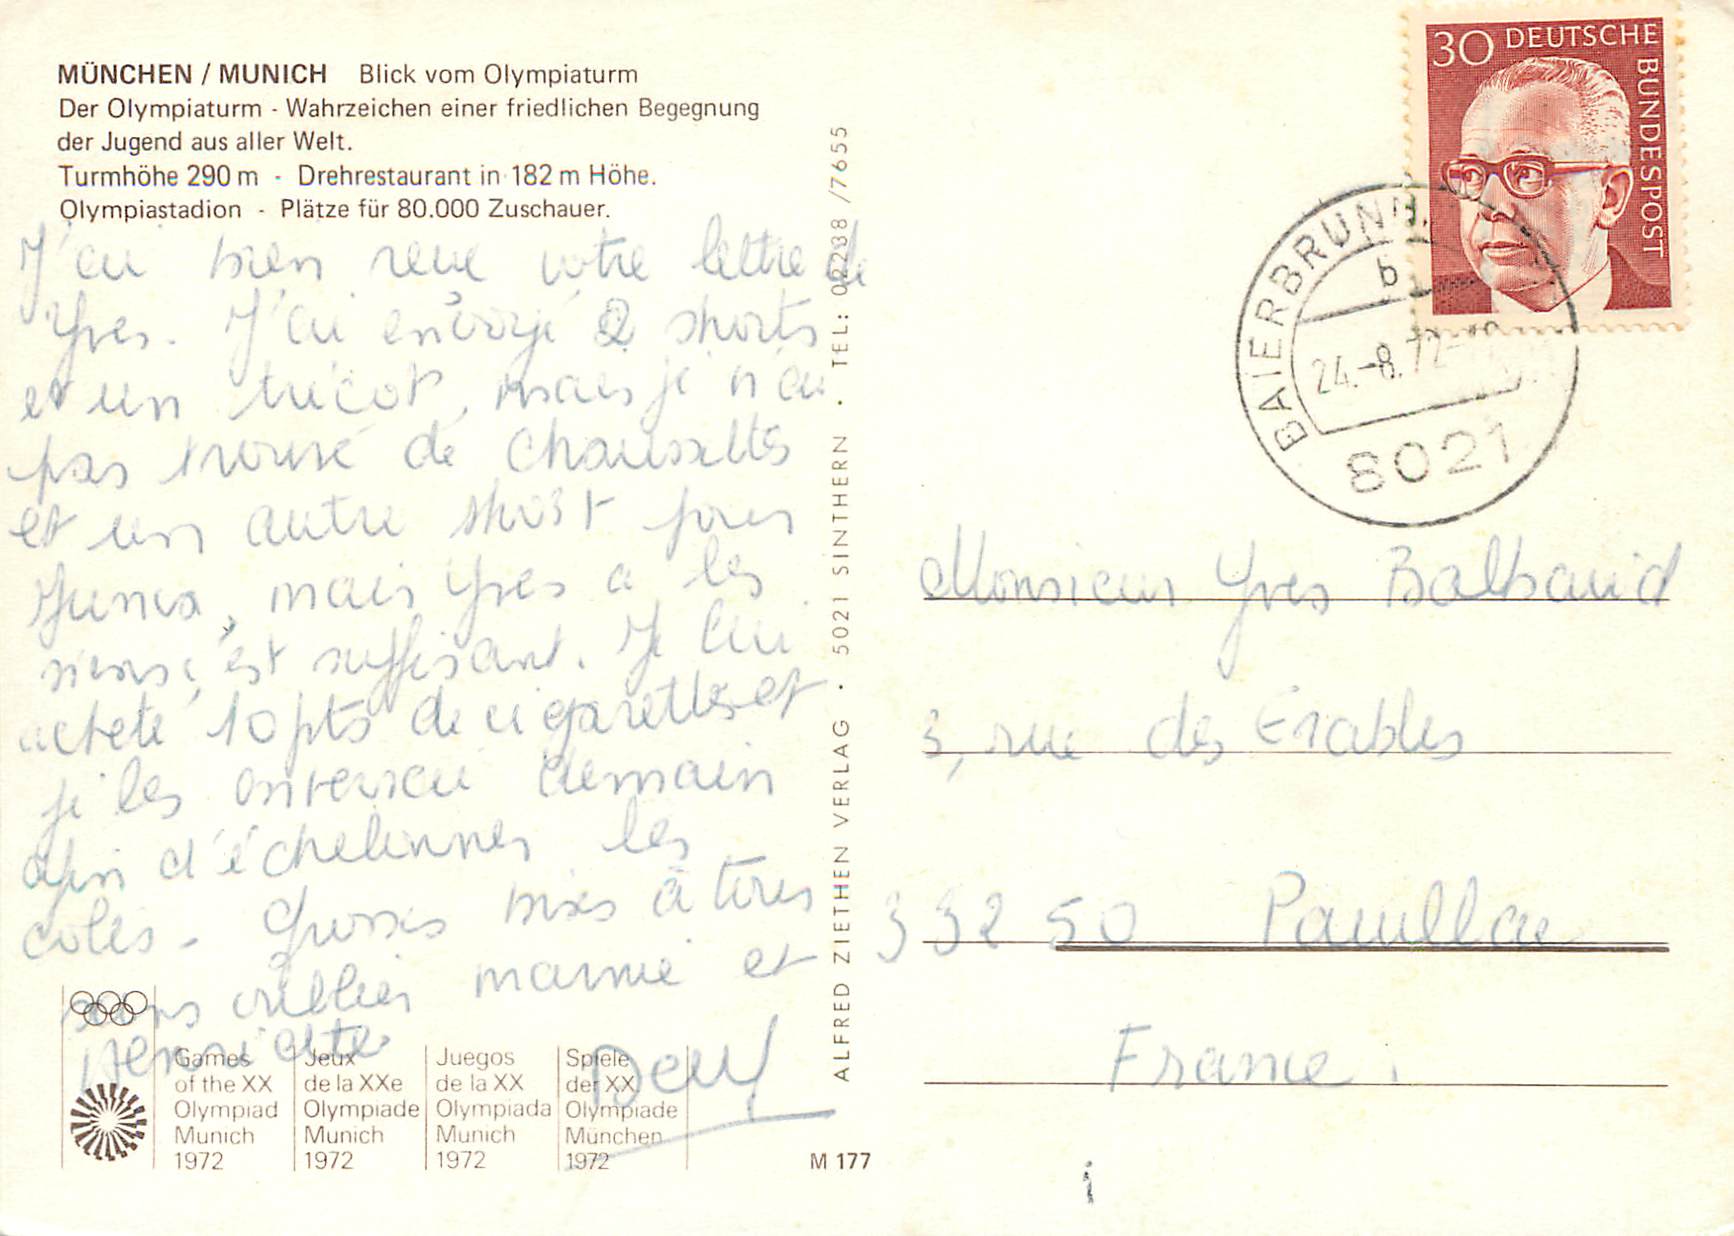 MÜNCHEN / MUNICH Blick vom Olympiaturm
Der Olympiaturm - Wahrzeichen einer friedlichen Begegnung
der Jugend aus aller Welt.
Turmhöhe 290 m - Drehrestaurant in 182 m Höhe.
Olympiastadion - Plätze für 80.000 Zuschauer.
J'ai bien reçu votre lettre de
Yves. J'ai envoyé 2 shorts
et un tricot, mais je n'ai
pas trouvé de chaussettes
et un autre short pour
mais Yves a les
siens c'est suffisant. Je lui
acheté 10 pts de cigarettes et
je les demain
afin d'échelonner les
colis. Grosses bises à tous
sans oublier mamie et
Henriette
30 DEUTSCHE BUNDESPOST
BAIERBRUNN
b
24.-8.72
8021
Monsieur Yves
3, rue des Erables
33250 Pauillac
France.
ALFRED ZIETHEN VERLAG · 5021 SINTHERN · TEL: 02238 /7655
Games
of the XX
Olympiad
Munich
1972
Jeux
de la XXe
Olympiade
Munich
1972
Juegos
de la XX
Olympiada
Munich
1972
Spiele
der XX
Olympiade
München
1972
M 177
i